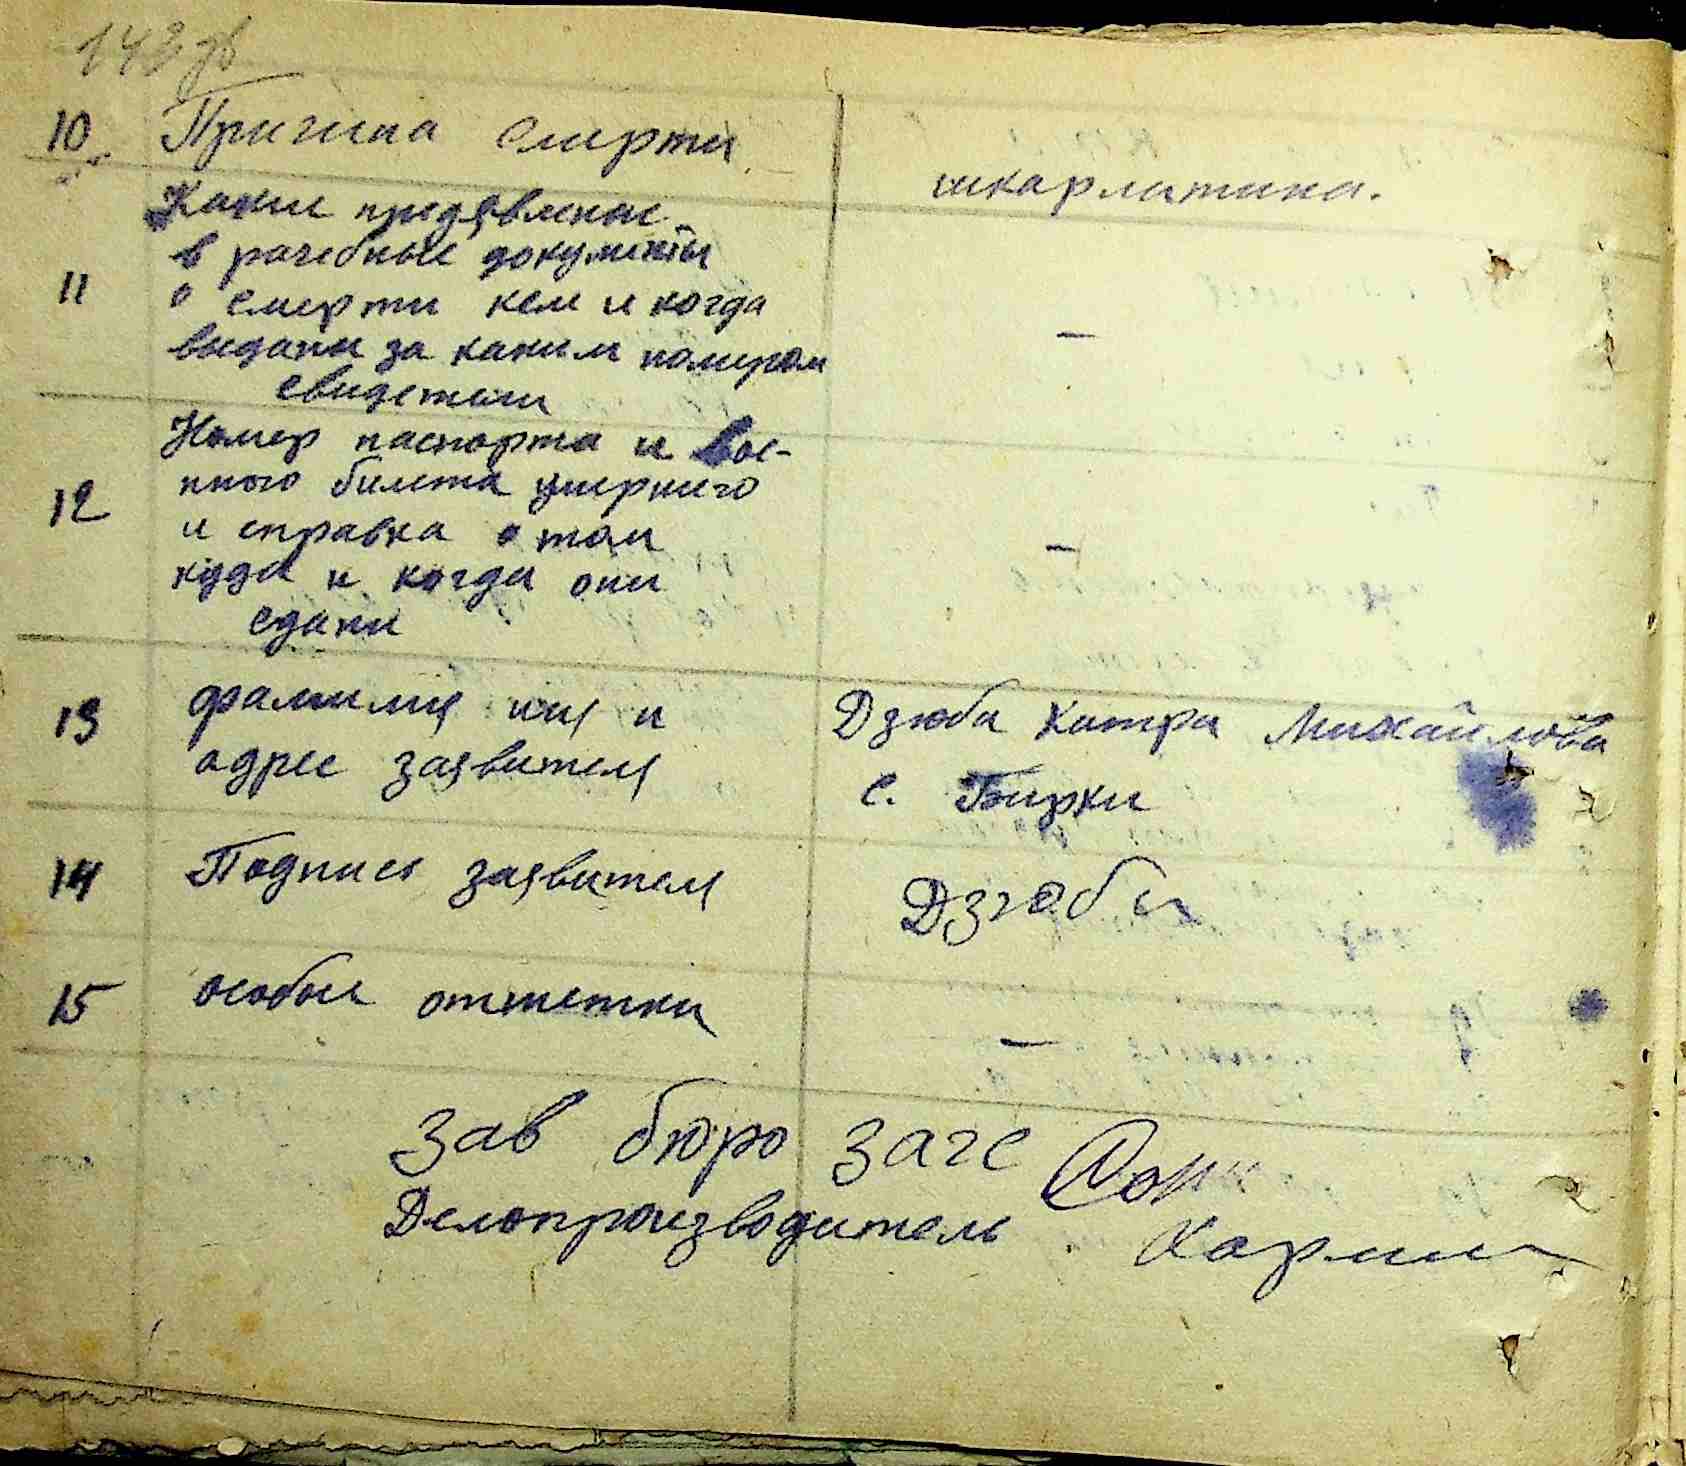 143 зв
10 Причина смерти
шкарлатина.
Какие предявленые
в рачебные документы
11 о смерти кем и когда
выданы за каким номером
свидетели
—
Номер паспорта и вое-
нного билета умершего
12 и справка о том
куда и когда они
сданы
—
13 фамилия имя и
адрес заявителя
Дзюба Катря Михайлова
с. Бирки
14 Подпись заявителя
Дзюба
15 особые отметки
—
Зав бюро загс
Делопроизводитель